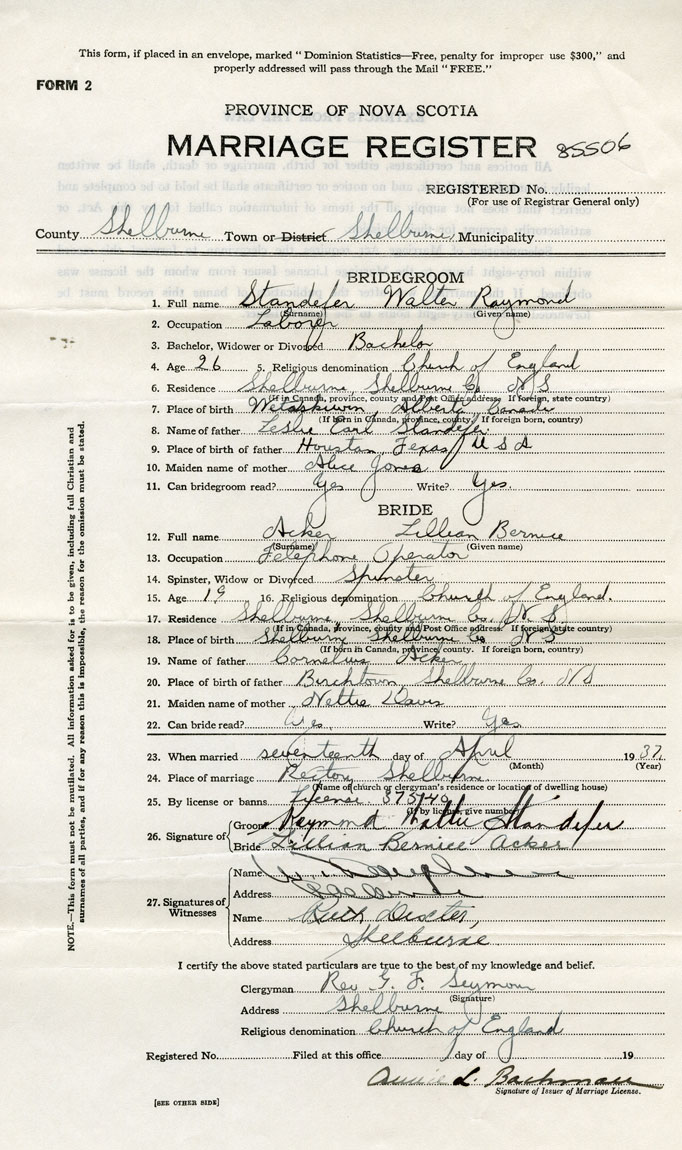 This form, if placed in an envelope, marked "Dominion Statistics—Free, penalty for improper use $300," and
properly addressed will pass through the Mail "FREE."
FORM 2
PROVINCE OF NOVA SCOTIA
MARRIAGE REGISTER 85506
REGISTERED No.
(For use of Registrar General only)
County Shelburne Town or District Shelburne Municipality
BRIDEGROOM
1. Full name Standefer Walter Raymond
(Surname) (Given name)
2. Occupation Laborer
3. Bachelor, Widower or Divorced Bachelor
4. Age 26 5. Religious denomination Church of England
6. Residence Shelburne, Shelburne Co. N S
(If in Canada, province, county and Post Office address. If foreign, state country)
7. Place of birth Wetaskiwin, Alberta, Canada
(If born in Canada, province, county. If foreign born, country)
8. Name of father Leslie Carl Standefer
9. Place of birth of father Houston, Texas, U S A
10. Maiden name of mother Alice Jones
11. Can bridegroom read? Yes Write? Yes.
BRIDE
12. Full name Acker Lillian Bernice
(Surname) (Given name)
13. Occupation Telephone Operator
14. Spinster, Widow or Divorced Spinster
15. Age 19 16. Religious denomination Church of England.
17. Residence Shelburne, Shelburne Co. N. S.
(If in Canada, province, county and Post Office address. If foreign state country)
18. Place of birth Shelburne Shelburne Co N S
(If born in Canada, province, county. If foreign born, country)
19. Name of father Cornelius Acker
20. Place of birth of father Birchtown, Shelburne Co. N S
21. Maiden name of mother Nettie Davis
22. Can bride read? Yes. Write? Yes.
23. When married seventeenth day of April 1937.
(Month) (Year)
24. Place of marriage Rectory Shelburne
(Name of church or clergyman's residence or location of dwelling house)
25. By license or banns License 375149
(If by license, give number)
26. Signature of Groom Raymond Walter Standefer
Bride Lillian Bernice Acker
27. Signatures of Witnesses
Name
Address Shelburne
Name Ruth Dexter,
Address Shelburne
I certify the above stated particulars are true to the best of my knowledge and belief.
Clergyman Rev G. F. Seymour
(Signature)
Address Shelburne
Religious denomination Church of England
Registered No. Filed at this office day of 19
Annie L. Bachman
Signature of Issuer of Marriage License.
[SEE OTHER SIDE]
NOTE.—This form must not be mutilated. All information asked for is to be given, including full Christian and
surnames of all parties, and if for any reason this is impossible, the reason for the omission must be stated.